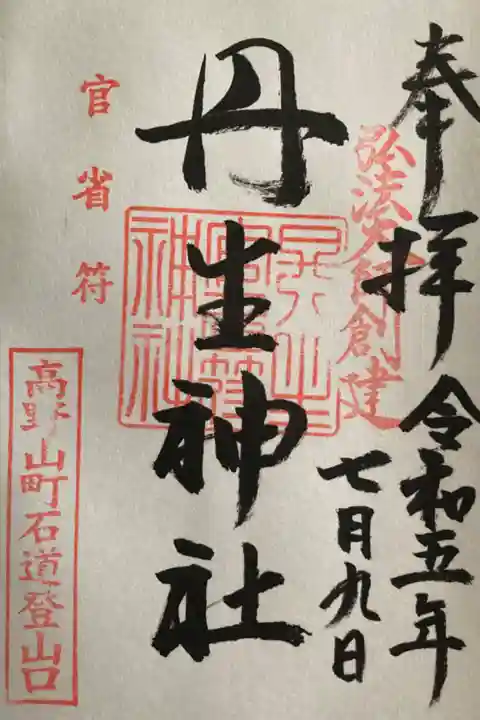 奉拝
令和五年
七月九日
弘法大師創建
丹生神社
官省符
高野山町石道登山口